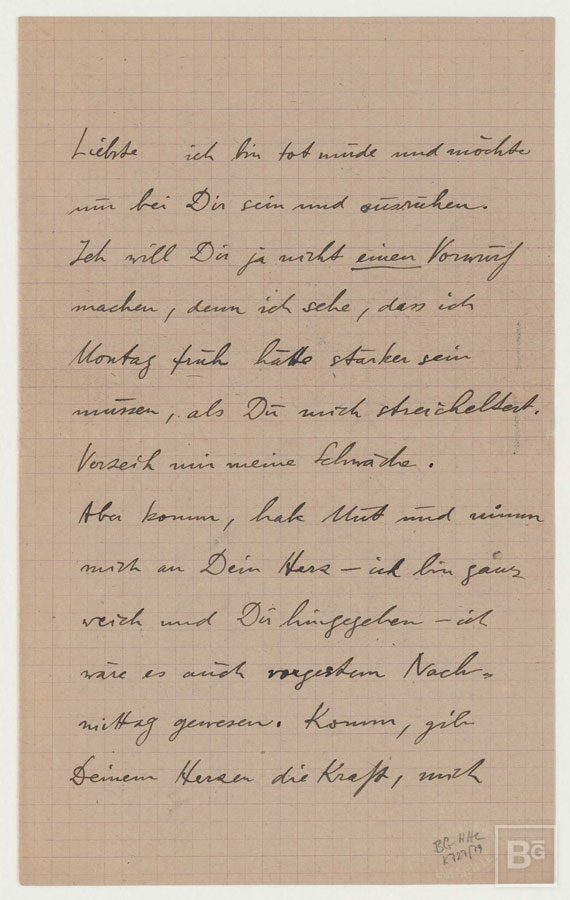 Liebste ich bin tot müde und möchte
nur bei Dir sein und ausruhen.
Ich will Dir ja nicht einen Vorwurf
machen, denn ich sehe, dass ich
Montag früh hätte stärker sein
müssen, als Du mich streicheltest.
Verzeih mir meine Schwäche.
Aber komm, hab Mut und nimm
mich an Dein Herz – ich bin ganz
weich und Dir hingegeben – ich
wäre es auch vorgestern Nach-
mittag gewesen. Komm, gib
Deinem Herzen die Kraft, mich
BG HHC
K727/79
BG